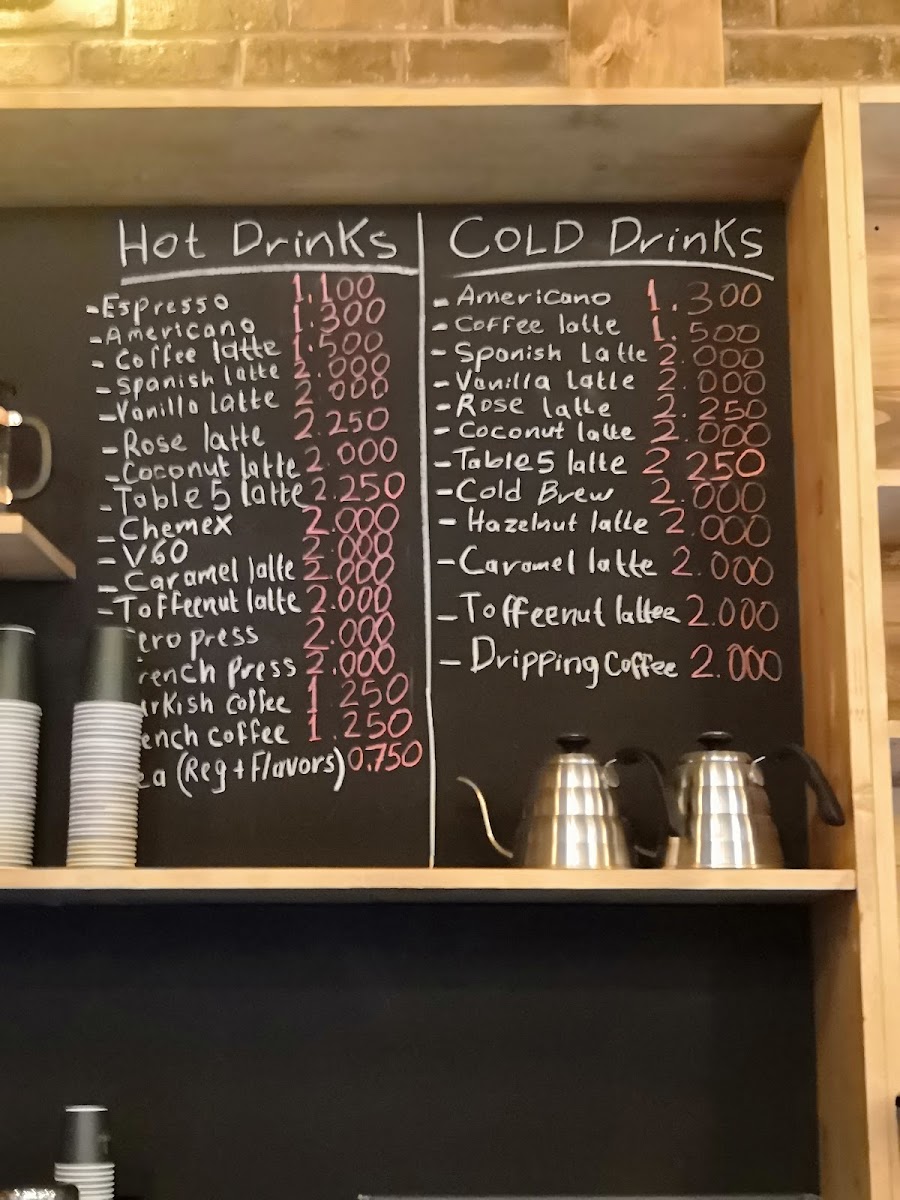 Hot Drinks
-Espresso 1.100
-Americano 1.300
- Coffee latte 1.500
-Spanish latte 2.000
-Vanilla latte 2.000
-Rose latte 2.250
-Coconut latte 2.000
-Table5 latte 2.250
-Chemex 2.000
-V60 2.000
-Caramel latte 2.000
-Toffeenut latte 2.000
ero press 2.000
rench press 2.000
rkish coffee 1.250
ench coffee 1.250
ea (Reg+Flavors) 0.750
COLD Drinks
-Americano 1.300
-Coffee latte 1.500
-Spanish Latte 2.000
-Vanilla Latte 2.000
-Rose latte 2.250
-Coconut latte 2.000
-Table5 latte 2.250
-Cold Brew 2.000
-Hazelnut latte 2.000
-Caramel latte 2.000
-Toffeenut lattee 2.000
-Dripping Coffee 2.000